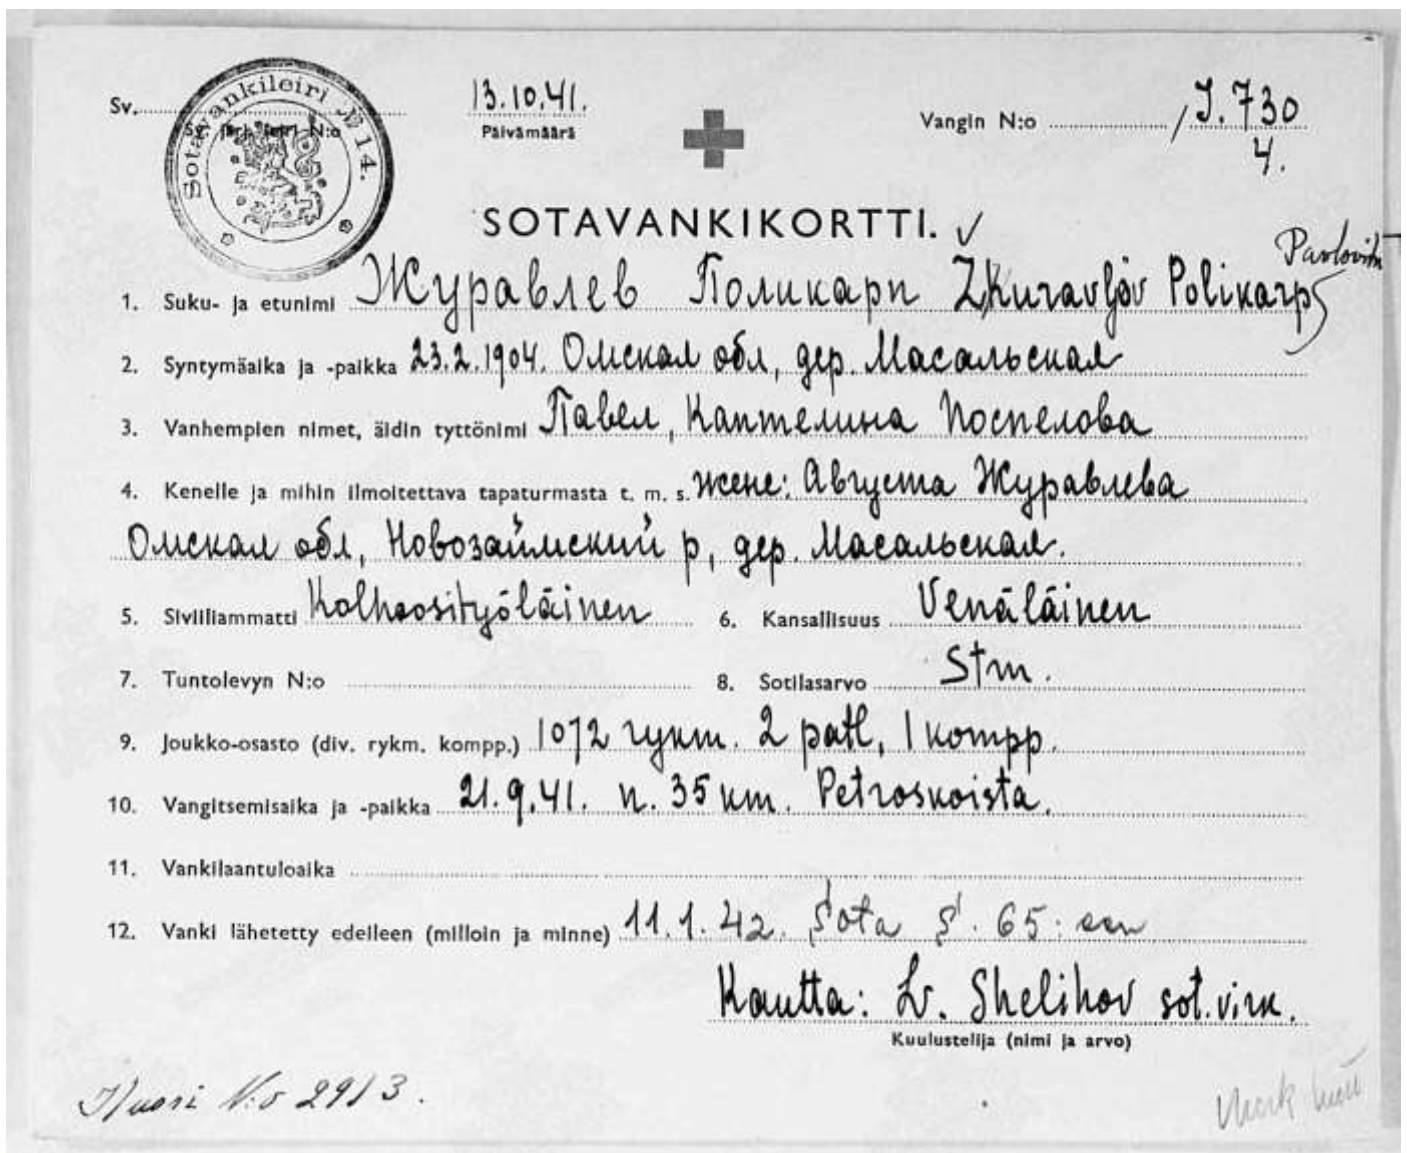 Sotavankileiri № 14.
Sv.
13.10.41.
Päivämäärä
Vangin N:o / J. 730
4.
SOTAVANKIKORTTI. ✓
Pavlovitš
1. Suku- ja etunimi Журавлев Поликарп Žhuravljöv Polikarp
2. Syntymäaika ja -paikka 23.2.1904. Омская обл, дер. Масальская
3. Vanhempien nimet, äidin tyttönimi Павел, Каптелина Поспелова
4. Kenelle ja mihin ilmoitettava tapaturmasta t. m. s. жене: Августа Журавлева
Омская обл, Новозаймский р, дер. Масальская.
5. Siviiliammatti Kolhoosityöläinen 6. Kansallisuus Venäläinen
7. Tuntolevyn N:o 8. Sotilasarvo Stm.
9. Joukko-osasto (div. rykm. kompp.) 1072 rykm. 2 patl, 1 kompp.
10. Vangitsemisaika ja -paikka 21.9.41. n. 35 km. Petroskoista.
11. Vankilaantuloaika
12. Vanki lähetetty edelleen (milloin ja minne) 11.1.42. Sota S. 65:een
Kautta: Lv. Shelihov sot.virk.
Kuulustelija (nimi ja arvo)
Kuori N:o 2913.